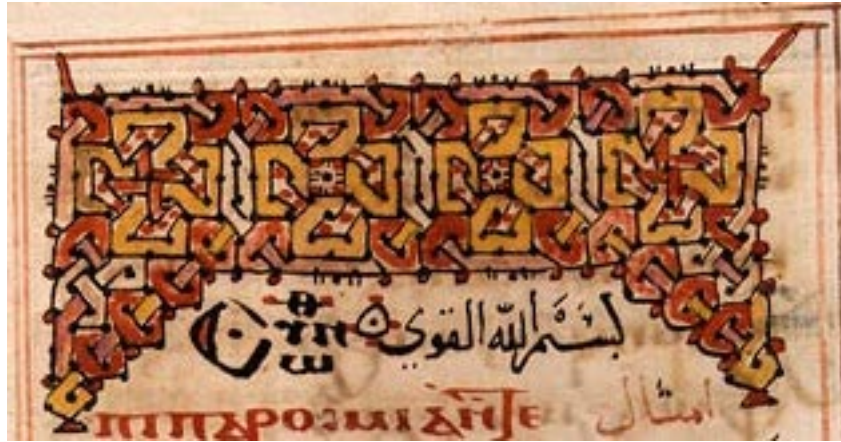 بسم الله القوي
ⲛⲓⲡⲁⲣⲟⲓⲙⲓⲁ ⲛ̀ⲧⲉ امثال